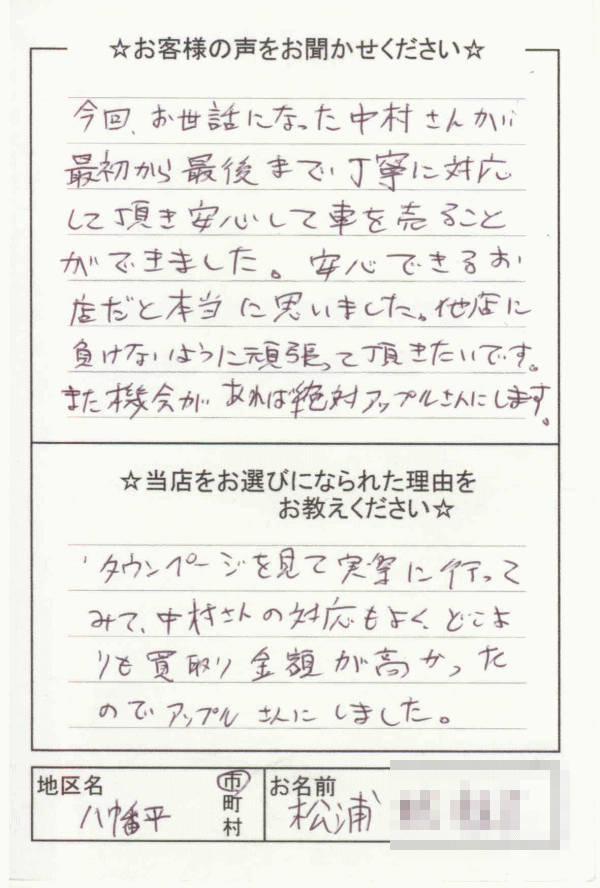 ☆お客様の声をお聞かせください☆
今回、お世話になった中村さんが
最初から最後まで丁寧に対応
して頂き安心して車を売ること
ができました。安心できるお
店だと本当に思いました。他店に
負けないように頑張って頂きたいです。
また機会があれば絶対アップルさんにします。
☆当店をお選びになられた理由を
お教えください☆
タウンページを見て実際に行って
みて、中村さんの対応もよく、どこよ
りも買取り金額が高かった
のでアップルさんにしました。
地区名 八幡平 市町村 お名前 松浦